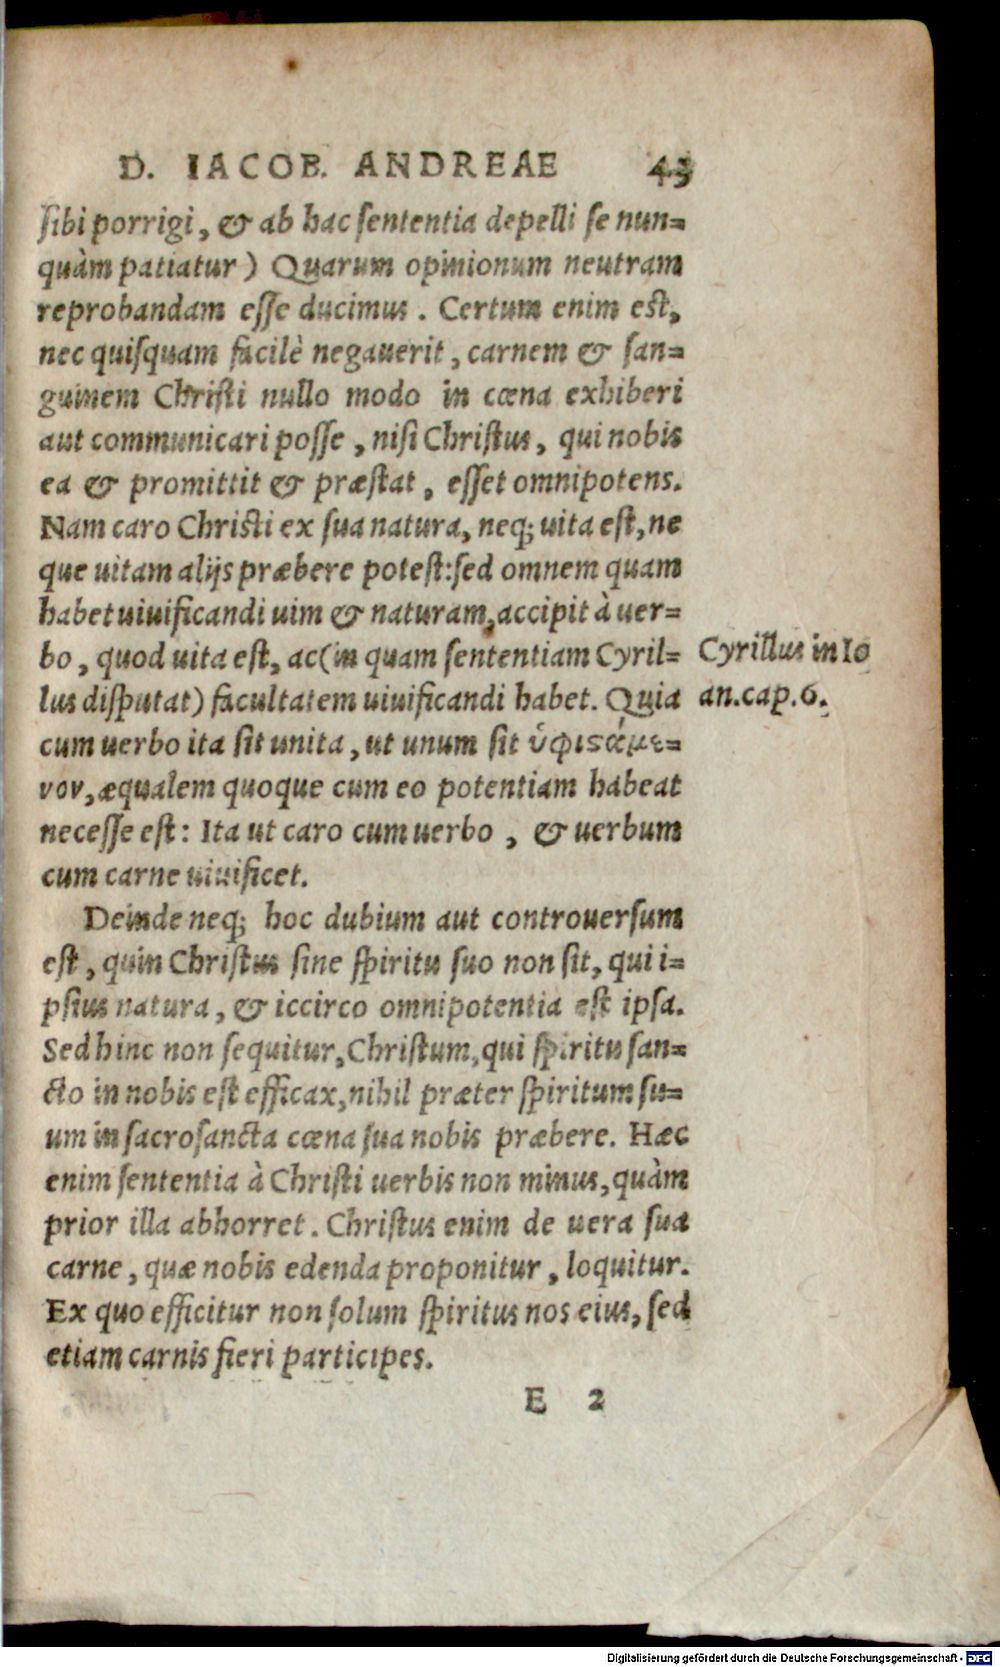 D. IACOB. ANDREAE 43
sibi porrigi, & ab hac sententia depelli se nun=
quàm patiatur) Quarum opinionum neutram
reprobandam esse ducimus. Certum enim est,
nec quisquam facilè negauerit, carnem & san=
guinem Christi nullo modo in cœna exhiberi
aut communicari posse, nisi Christus, qui nobis
ea & promittit & præstat, esset omnipotens.
Nam caro Christi ex sua natura, neq; uita est, ne
que uitam alijs præbere potest: sed omnem quam
habet uiuificandi uim & naturam, accipit à uer=
bo, quod uita est, ac (in quam sententiam Cyril=
lus disputat) facultatem uiuificandi habet. Quia
cum uerbo ita sit unita, ut unum sit ὑφιϛάμε=
νον, æqualem quoque cum eo potentiam habeat
necesse est: Ita ut caro cum uerbo, & uerbum
cum carne uiuificet.
Cyrillus in Io
an. cap. 6.
Deinde neq; hoc dubium aut controuersum
est, quin Christus sine spiritu suo non sit, qui i=
psius natura, & iccirco omnipotentia est ipsa.
Sed hinc non sequitur, Christum, qui spiritu san=
cto in nobis est efficax, nihil præter spiritum su=
um in sacrosancta cœna sua nobis præbere. Hæc
enim sententia à Christi uerbis non minus, quàm
prior illa abhorret. Christus enim de uera sua
carne, quæ nobis edenda proponitur, loquitur.
Ex quo efficitur non solum spiritus nos eius, sed
etiam carnis fieri participes.
E 2
Digitalisierung gefördert durch die Deutsche Forschungsgemeinschaft - DFG